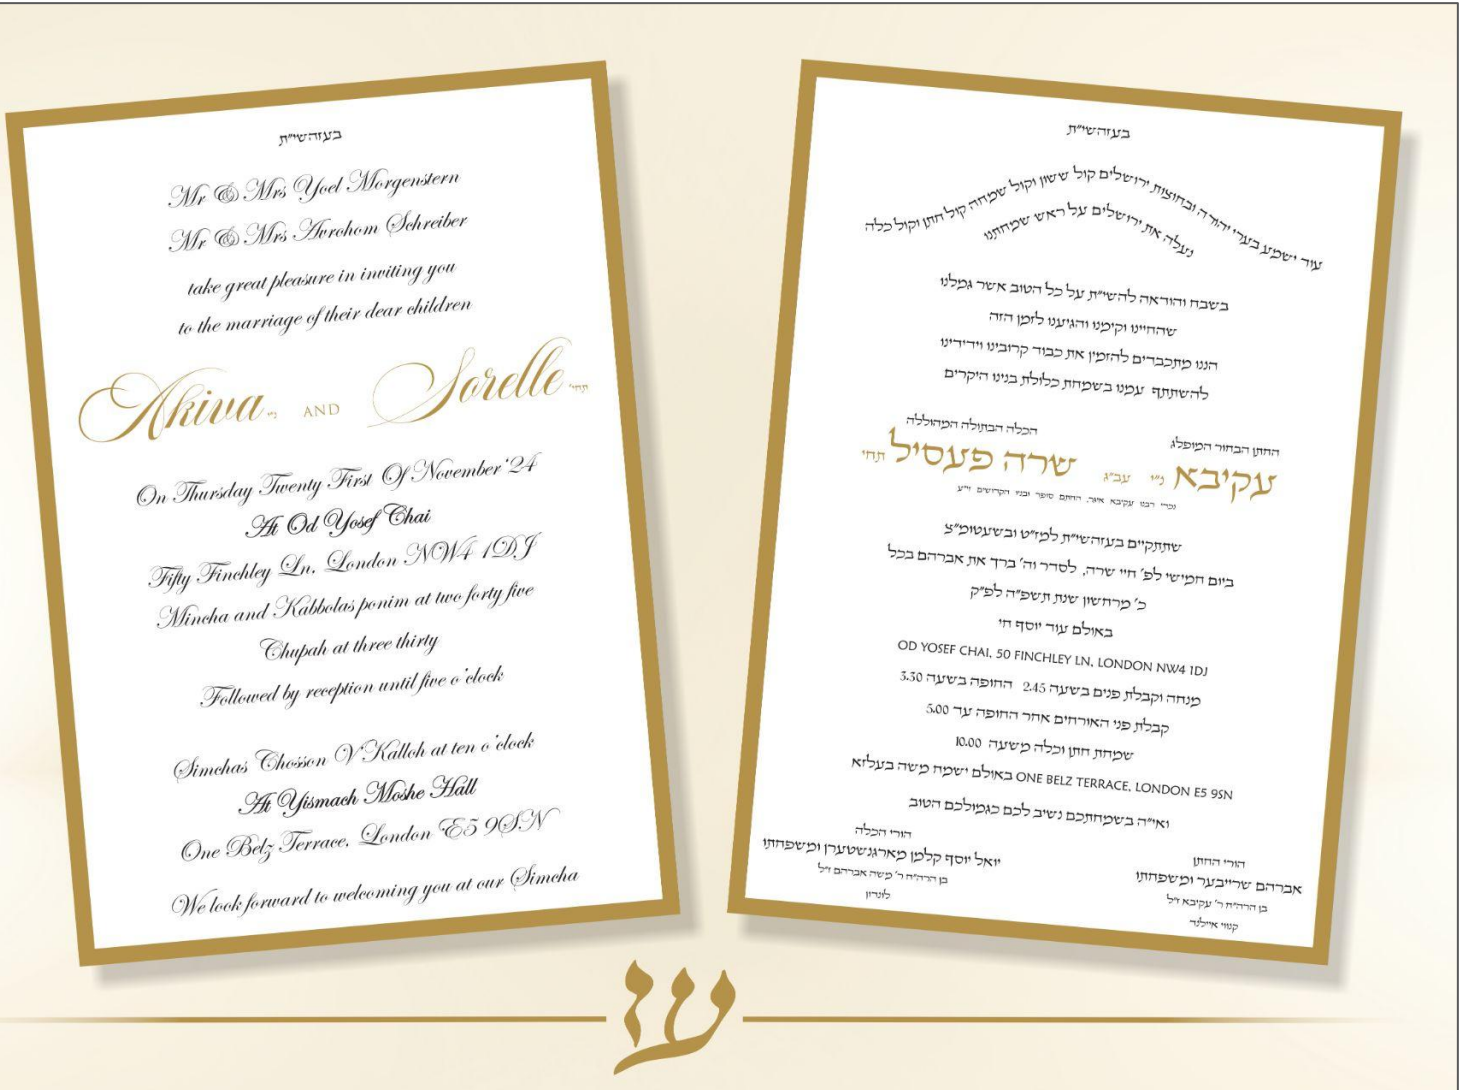 בעזהשי"ת
Mr & Mrs Yoel Morgenstern
Mr & Mrs Avrohom Schreiber
take great pleasure in inviting you
to the marriage of their dear children
Akiva נ"י AND Sorelle תחי'
On Thursday Twenty First Of November '24
At Od Yosef Chai
Fifty Finchley Ln, London NW4 1DJ
Mincha and Kabbolas ponim at two forty five
Chupah at three thirty
Followed by reception until five o'clock
Simchas Chosson V'Kalloh at ten o'clock
At Yismach Moshe Hall
One Belz Terrace, London E5 9SN
We look forward to welcoming you at our Simcha
בעזהשי"ת
עוד ישמע בערי יהודה ובחוצות ירושלים קול ששון וקול שמחה קול חתן וקול כלה
נעלה את ירושלים על ראש שמחתנו
בשבח והודאה להשי"ת על כל הטוב אשר גמלנו
שהחיינו וקימנו והגיענו לזמן הזה
הננו מתכבדים להזמין את כבוד קרובינו וידידינו
להשתתף עמנו בשמחת כלולת בנינו היקרים
החתן הבחור המופלג
הכלה הבתולה המהוללה
עקיבא נ"י עב"ג שרה פעסיל תחי'
נכדי רבנו עקיבא איגר, החתם סופר ובניו הקדושים זי"ע
שתתקיים בעזהשי"ת למז"ט ובשעטומ"צ
ביום חמישי לפ' חיי שרה, לסדר וה' ברך את אברהם בכל
כ' מרחשון שנת תשפ"ה לפ"ק
באולם עוד יוסף חי
OD YOSEF CHAI, 50 FINCHLEY LN, LONDON NW4 1DJ
מנחה וקבלת פנים בשעה 2.45 החופה בשעה 3.30
קבלת פני האורחים אחר החופה עד 5.00
שמחת חתן וכלה משעה 10.00
באולם ישמח משה בעלזא ONE BELZ TERRACE, LONDON E5 9SN
ואי"ה בשמחתכם נשיב לכם כגמולכם הטוב
הורי החתן
אברהם שרייבער ומשפחתו
בן הרה"ח ר' עקיבא ז"ל
קנווי איילנד
הורי הכלה
יואל יוסף קלמן מארגנשטערן ומשפחתו
בן הרה"ח ר' משה אברהם ז"ל
לונדון